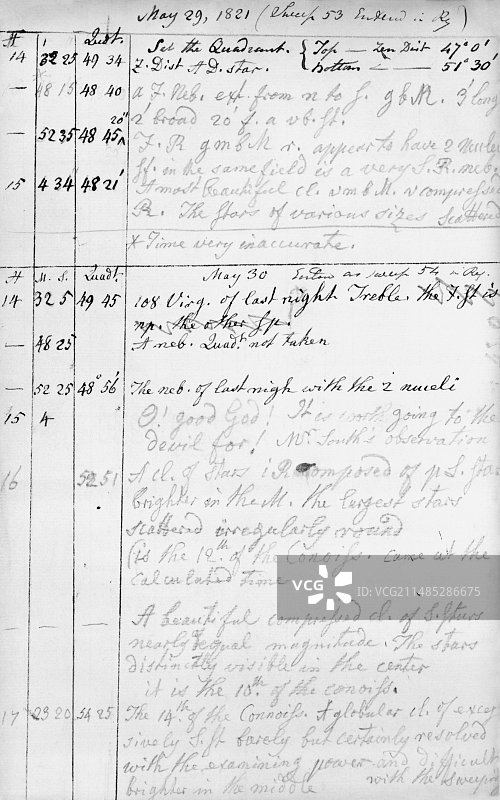 May 29, 1821 (Sweep 53 Entered in Reg)
H ' Quadt.
14 32 25 49 34 Set the Quadrant. { Top — Zen Dist 47° 0'
Z. Dist A D. star. bottom — — 51° 30'
— 48 15 48 40 a F. Neb. ext. from n to s. g b M. 3' long
2' broad 20' f. a v b. st.
20"
— 52 35 48 45 F. R g m b M r. appears to have 2 nuclei
sf. in the same field is a very S. R. neb.
15 4 34 48 21' A most beautiful cl. v m b M. v compress
R. The stars of various sizes scattered
x Time very inaccurate.
H M. S. Quadt. May 30 Entered as sweep 54 in Reg.
14 32 5 49 45 108 Virg. of last night Treble. the F. st is
np. the other sp.
— 48 25 A neb. Quadt. not taken
— 52 25 48° 56' The neb. of last nigh with the 2 nucli
15 4 O! good God! It is worth going to the
devil for! Mr. South's observation
16 52 51 A cl. of stars i R composed of p S. stars
brighter in the M. the largest stars
scattered irregularly round
(is the 12th of the Conoiss. came at the
calculated time
A beautiful compressed cl. of S. stars
nearly of equal magnitude. The stars
distinctly visible in the center
it is the 10th. of the conoiss.
17 23 20 54 25 The 14th. of the Connoiss. A globular cl. of exces
sively S. st barely but certainly resolved
with the examining power and difficult
brighter in the middle with the sweeping
VCG
VCG.COM
ID:VCG211485286675